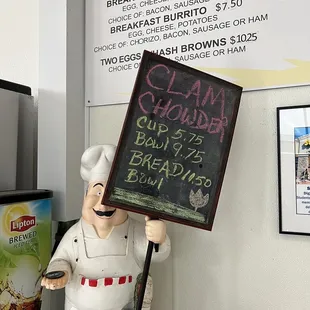 EGG, CHEESE,
CHOICE OF: BACON, SAUSAGE OR HAM
BREAKFAST BURRITO $7.50
EGG, CHEESE, POTATOES
CHOICE OF: CHORIZO, BACON, SAUSAGE OR HAM
TWO EGGS HASH BROWNS $10.25
CHOICE OF: BACON, SAUSAGE OR HAM
CLAM
CHOWDER
CUP 5.75
BOWL 9.75
BREAD 10.50
BOWL
Lipton
BREWED